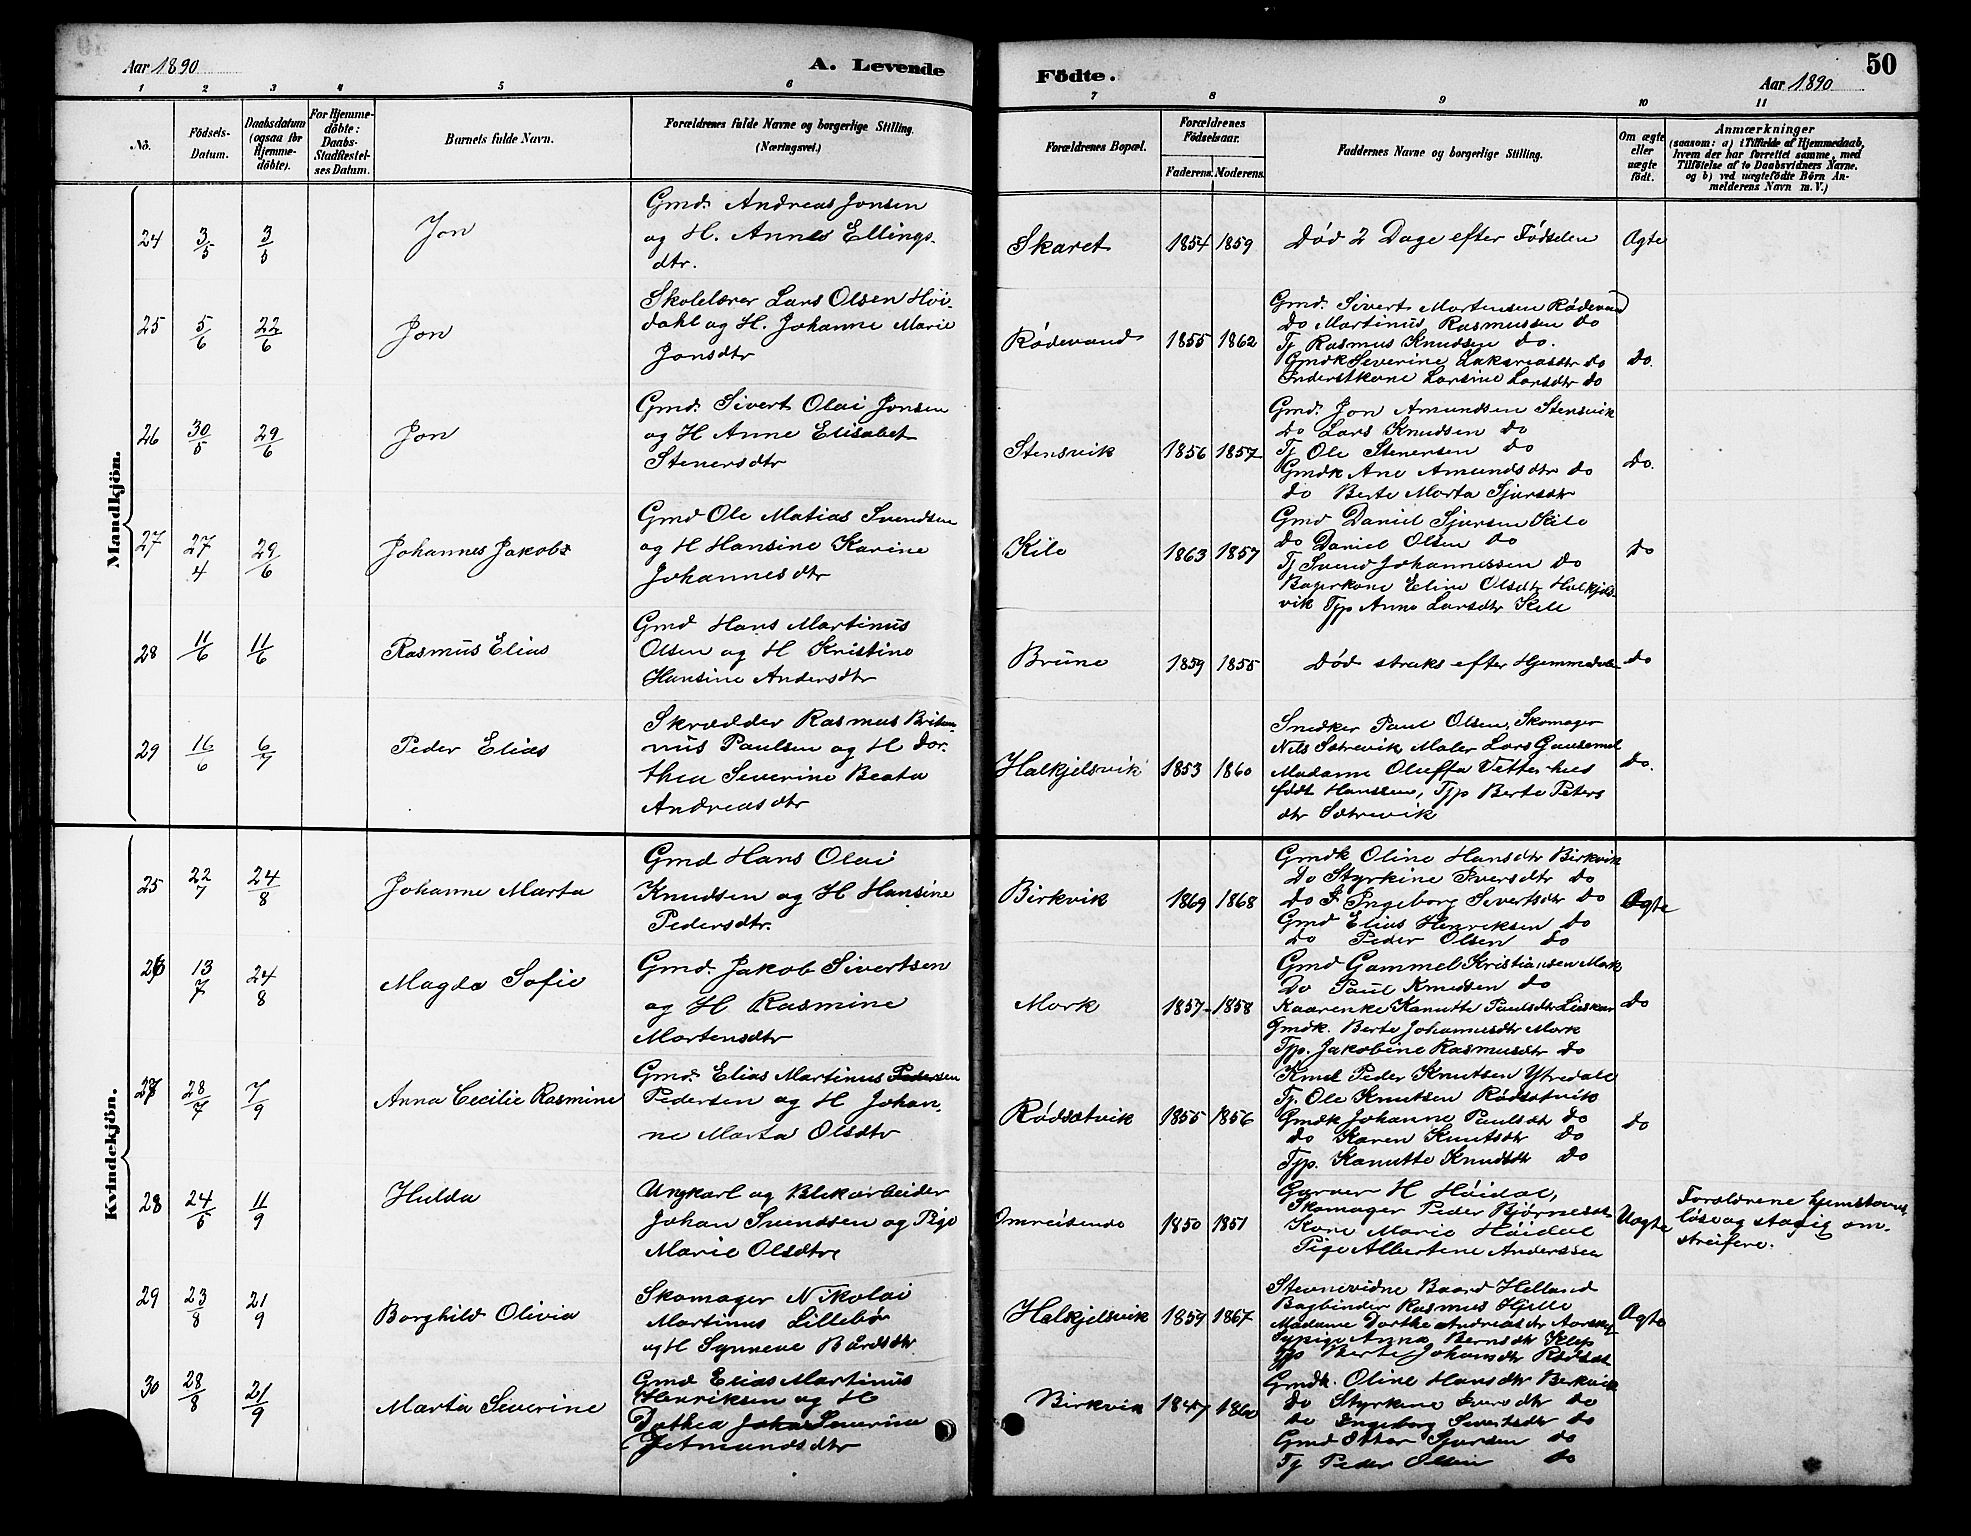 Aar 1890
A. Levende
Födte.
Aar 1890
50
1 2 3 4 5 6 7 8 9 10 11
No.
Födsels-
Datum.
Daabsdatum
(ogsaa for
Hjemme-
döbte).
For Hjemme-
döbte:
Daabs-
Stadfæstel-
ses Datum.
Barnets fulde Navn.
Forældrenes fulde Navne og borgerlige Stilling.
(Næringsvei.)
Forældrenes Bopæl.
Forældrenes
Födselsaar.
Faderens. Moderens.
Faddernes Navne og borgerlige Stilling.
Om ægte
eller
uægte
födt.
Anmærkninger
(saasom: a) i Tilfælde af Hjemmedaab,
hvem der har forrettet samme, med
Tilföielse af to Daabsvidners Navne.
og b) ved uægtefödte Börn An-
melderens Navn m. V.)
Mandkjön.
24 3/5 3/5 Jon
Gmd. Andreas Jonsen
og H. Anne Ellings-
dtr.
Skaret 1854 1859
Död 2 Dage efter Födselen
Ægte
25 5/6 22/6 Jon
Skolelærer Lars Olsen Höi-
dahl og H. Johanne Marie
Jonsdtr
Rödevand 1855 1862
Gmd. Sivert Martensen Rødevand
do Martinus Rasmussen do
Tj Rasmus Knudsen do.
Gmdk Severine Laksreasdtr do
Inderstkone Larsine Larsdtr do
do.
26 30/5 29/6 Jon
Gmd. Sivert Olai Jonsen
og H Anne Elisabet
Stenersdtr
Stensvik 1856 1857
Gmd. Jon Amundsen Stensvik
do Lars Knudsen do
Tj Ole Stenersen do
Gmdk Ane Amundsdtr do
do Berte Marta Sjursdtr
do.
27 27/4 29/6 Johannes Jakob
Gmd Ole Matias Svendsen
og H Hansine Karine
Johannesdtr
Kile 1863 1857
Gmd Daniel Sjursen Kile
do Daniel Olsen do
Tj Svend Johannessen do
Bagerkone Eline Olsdtr Halkjels-
vik Tjp Anne Larsdtr Kile
do
28 11/6 11/6 Rasmus Elias
Gmd Hans Martinus
Olsen og H Kristine
Hansine Andersdtr
Brune 1859 1855
Död straks efter Hjemmedaaben
do
29 16/6 6/7 Peder Elias
Skrædder Rasmus Britan-
nus Paulsen og H Dor-
thea Severine Beata
Andreasdtr
Halkjelsvik 1853 1860
Snedker Paul Olsen, Skomager
Nils Sætrevik Maler Lars Gausemel
Madame Oluffa Vetterhus
født Hanssen, Tjp Berte Peters
dtr Sætrevik
do.
Kvindekjön.
25 22/7 24/8 Johanne Marta
Gmd Hans Olai
Knudsen og H Hansine
Pedersdtr.
Birkvik 1869 1868
Gmdk Oline Hansdtr Birkvik
do Styrkine Iversdtr do
do Ingeborg Sivertsdtr do
Gmd Elias Henriksen do
do Peder Olsen do
Ægte
26 13/7 24/8 Magda Sofie
Gmd. Jakob Sivertsen
og H Rasmine
Martensdtr
Mork 1857 1858
Gmd Gammel Kristiansen Mork
do Paul Knudsen do
Kaarenke Kanutte Paulsdtr
Gmdk. Berte Johannesdtr Mork
Tjp. Jakobine Rasmusdtr do
do
27 28/7 7/9 Anna Cecilie Rasmine
Gmd. Elias Martinus Pedersen
Pedersen og H Johan-
ne Marta Olsdtr
Rödsætvik 1855 1856
Kmd Peder Knutsen Ytredale
Tj. Ole Knutsen Rødsætvik
Gmdk Johanne Paulsdtr do
do Karen Knutsdtr do
Tjp. Kanutte Knudsdtr do
do
28 24/5 11/9 Hulda
Ungkarl og Blikarbeider
Johan Svendsen og Pige
Marie Olsdtre
Omreisende 1850 1851
Garver H Höidal,
Skomager Peder Bjørnesæt
Kone Marie Höidal
Pige Albertene Anderssen
Uægte
Forældrene hjemstavns-
løse og stadig om-
streifere.
29 23/8 21/9 Borghild Olivia
Skomager Nikolai
Martinus Lillebø
og H Synneve Bårdsdtr
Halkjelsvik 1859 1867
Stevnevidne Baard Helland
Bogbinder Rasmus Hjelle
Madame Dorthe Andreasdtr Aarseth
Sypige Anna Berndtr Klep
Tjp Berte Johansdtr Rødsæt
Ægte
30 28/8 21/9 Marta Severine
Gmd Elias Martinus
Henriksen og H
Dothea Joha Severine
Amundsdtr
Birkvik 1847 1860
Gmdk. Oline Hansdtr Berkvik
do Styrkine Iversdtr do
do Ingeborg Sivertsdtr do
Gmd Otter Sjursen do
Tj Peder Olsen do